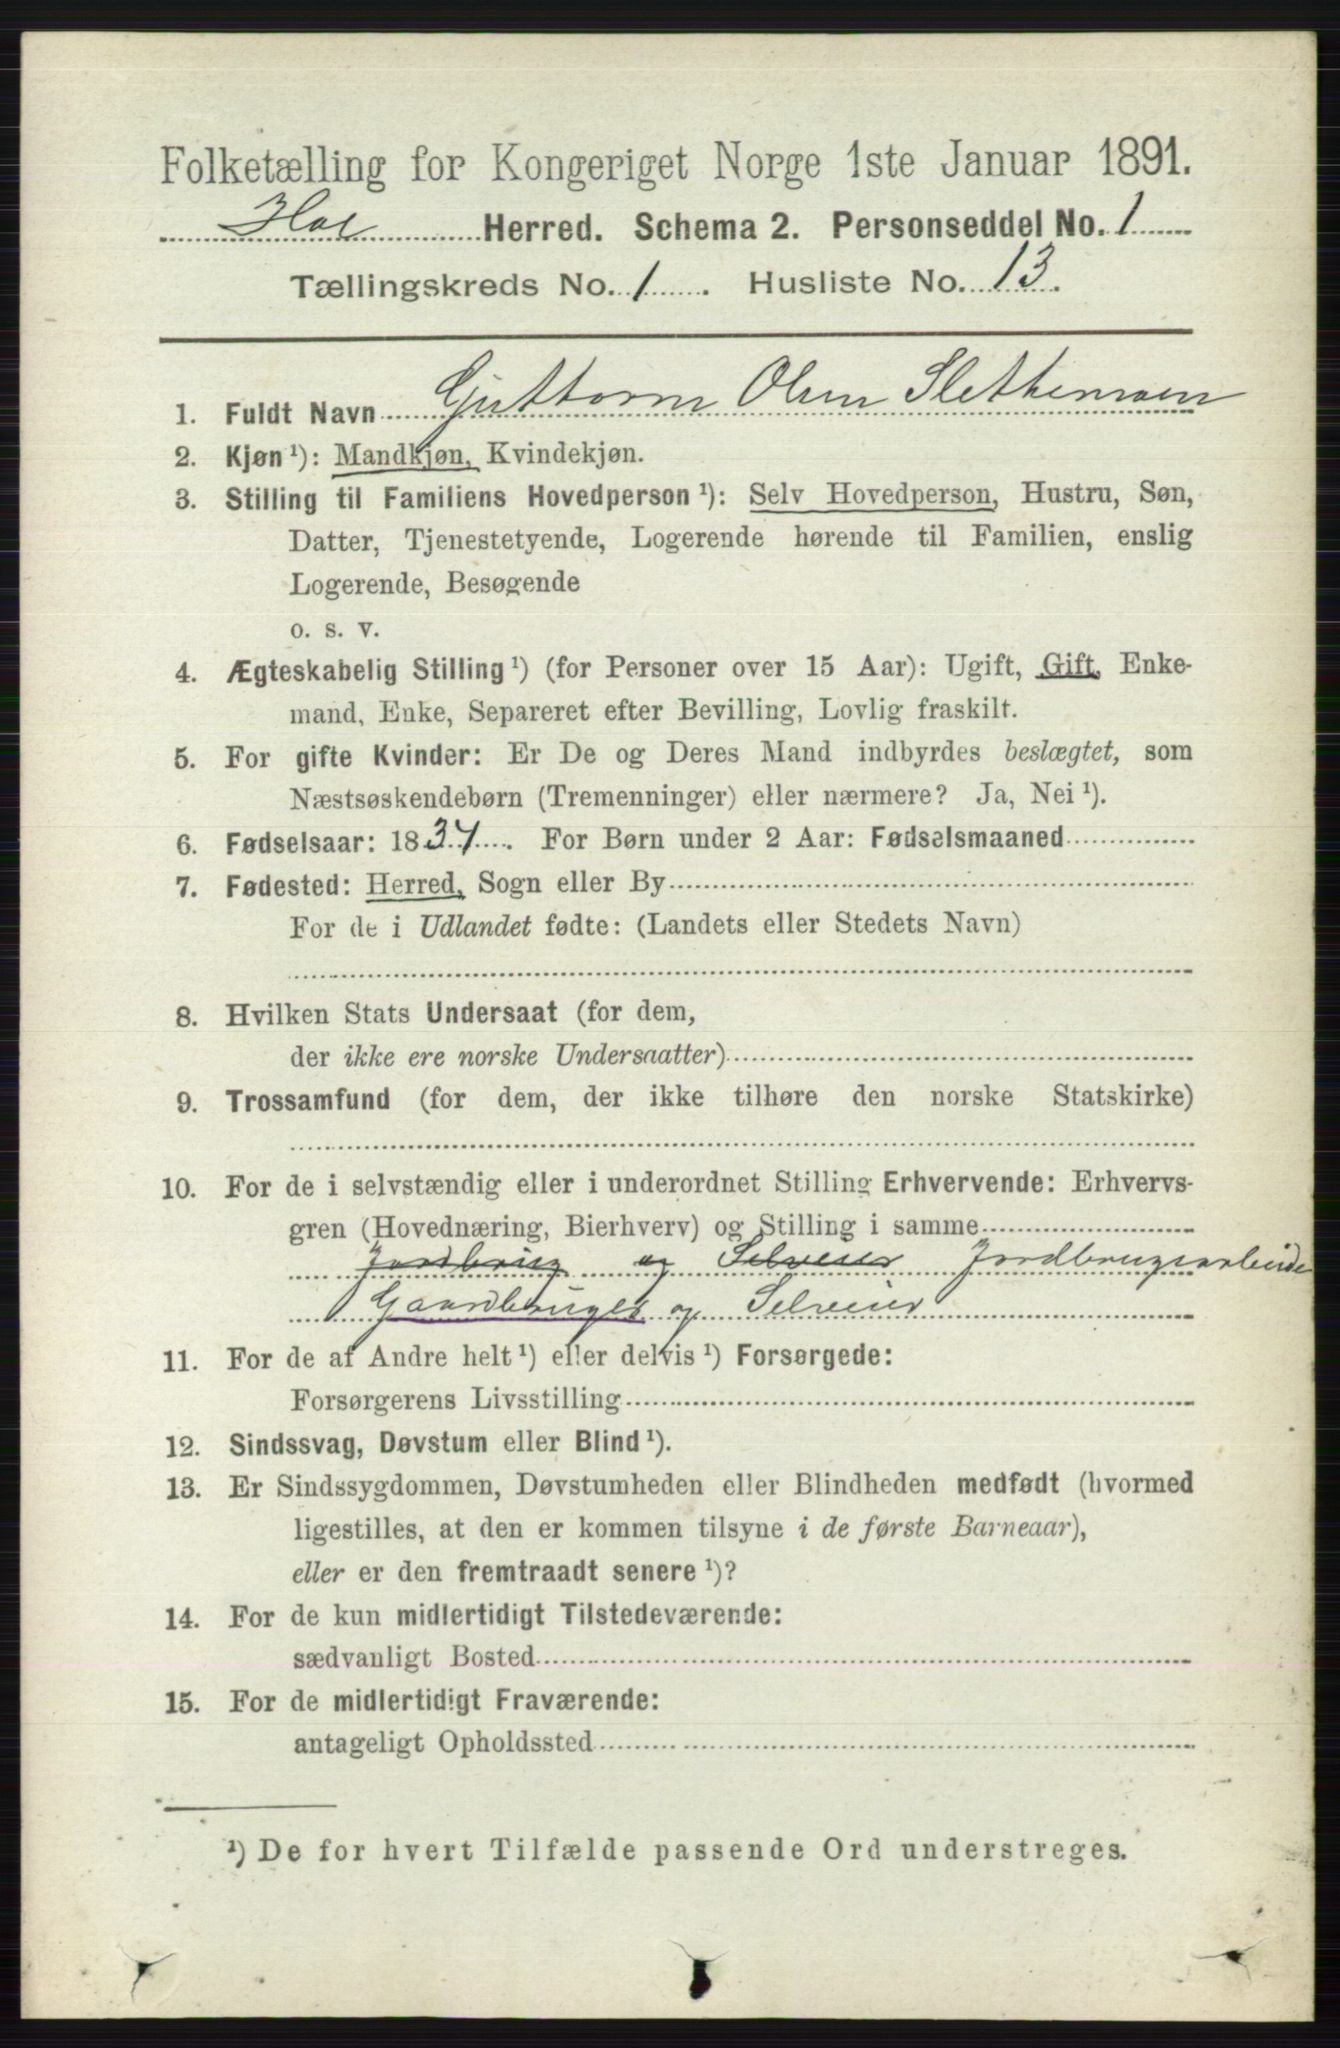 Folketælling for Kongeriget Norge 1ste Januar 1891.
Hol Herred. Schema 2. Personseddel No. 1
Tællingskreds No. 1. Husliste No. 13.
1. Fuldt Navn Guttorm Olsen Slettemoen
2. Kjøn ¹): Mandkjøn, Kvindekjøn.
3. Stilling til Familiens Hovedperson ¹): Selv Hovedperson, Hustru, Søn,
Datter, Tjenestetyende, Logerende hørende til Familien, enslig
Logerende, Besøgende
o. s. v.
4. Ægteskabelig Stilling ¹) (for Personer over 15 Aar): Ugift, Gift, Enke-
mand, Enke, Separeret efter Bevilling, Lovlig fraskilt.
5. For gifte Kvinder: Er De og Deres Mand indbyrdes beslægtet, som
Næstsøskendebørn (Tremenninger) eller nærmere? Ja, Nei ¹).
6. Fødselsaar: 1834. For Børn under 2 Aar: Fødselsmaaned
7. Fødested: Herred, Sogn eller By
For de i Udlandet fødte: (Landets eller Stedets Navn)
8. Hvilken Stats Undersaat (for dem,
der ikke ere norske Undersaatter)
9. Trossamfund (for dem, der ikke tilhøre den norske Statskirke)
10. For de i selvstændig eller i underordnet Stilling Erhvervende: Erhvervs-
gren (Hovednæring, Bierhverv) og Stilling i samme
Jordbrug og Selveier Jordbrugsarbeide
Gaardbruger og Selveier
11. For de af Andre helt ¹) eller delvis ¹) Forsørgede:
Forsørgerens Livsstilling
12. Sindssvag, Døvstum eller Blind ¹).
13. Er Sindssygdommen, Døvstumheden eller Blindheden medfødt (hvormed
ligestilles, at den er kommen tilsyne i de første Barneaar),
eller er den fremtraadt senere ¹)?
14. For de kun midlertidigt Tilstedeværende:
sædvanligt Bosted
15. For de midlertidigt Fraværende:
antageligt Opholdssted
¹) De for hvert Tilfælde passende Ord understreges.